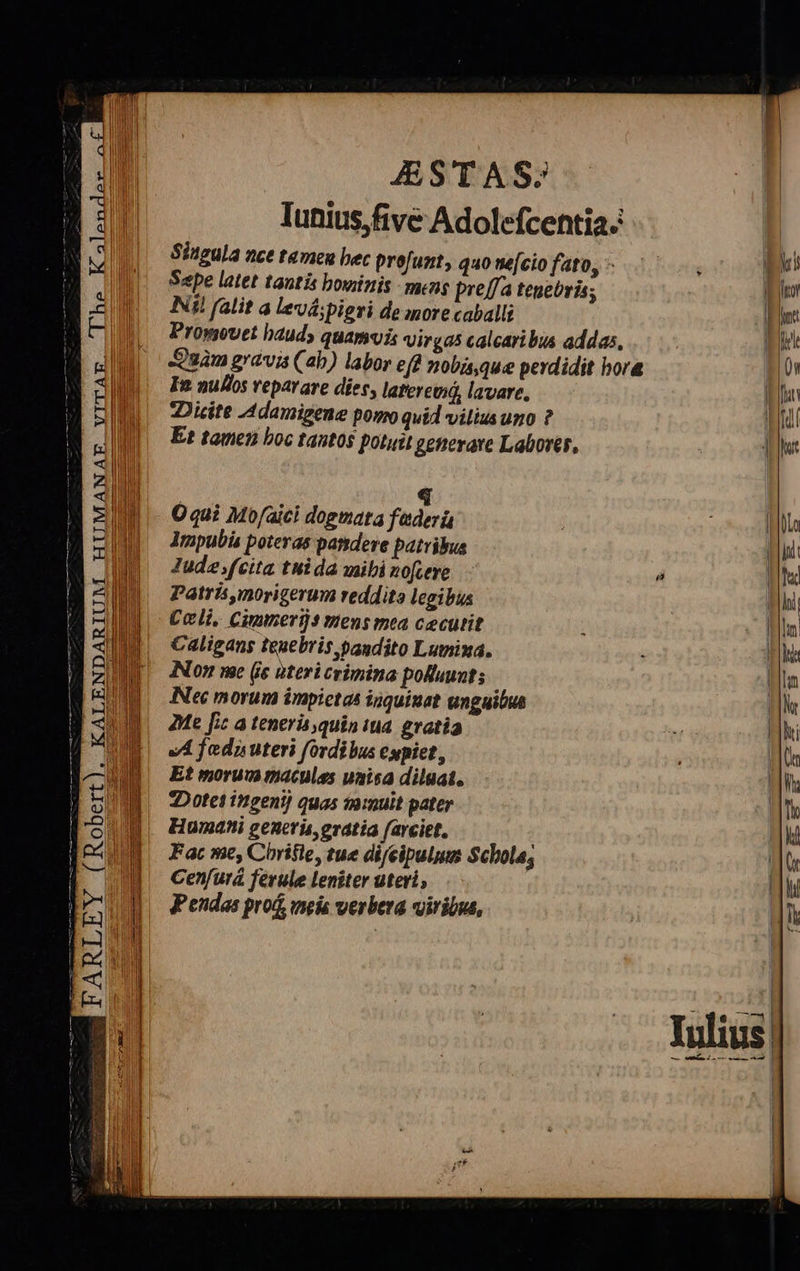 ÆSTAS.
Iunius, ſive Adoleſcentia.
Singula nec tamen hæc proſunt, quo neſcio fato,
Sæpe latet tantis hominis mens preſſa tenebris;
Nil ſalit a levâ; pigri de more caballi
Promovet haud, quamvis virgas calcaribus addas,
Quàm gravis (ah) labor eſt nobis, quæ perdidit hora
In nullos reparare dies, lateremq́, lavare.
Dicite Adamigenæ pomo quid vilius uno ?
Et tamen hoc tantos potuit generare Labores.
¶
O qui Moſaici dogmata fœderis
Impubis poteras pandere patribus
Iudæ, ſcita tui da mihi noſcere
Patris, morigerum reddito legibus
Cœli. Cimmerijs mens mea cæcutit
Caligans tenebris, pandito Lumina.
Non me ſic uteri crimina polluunt;
Nec morum impietas inquinat unguibus
Me ſic a teneris, quin tua gratia
A fœdis uteri ſordibus expiet,
Et morum maculas unica diluat.
Dotes ingenij quas minuit pater
Humani generis, gratia ſarciet.
Fac me, Chriſte, tuæ diſcipulum Scholæ,
Cenſurâ ferulæ leniter uteri,
Pendas proq́, meis verbera viribus,
Iulius
FARLEY (Robert). KALENDARIUM HUMANAE VITAE. The Kalender of